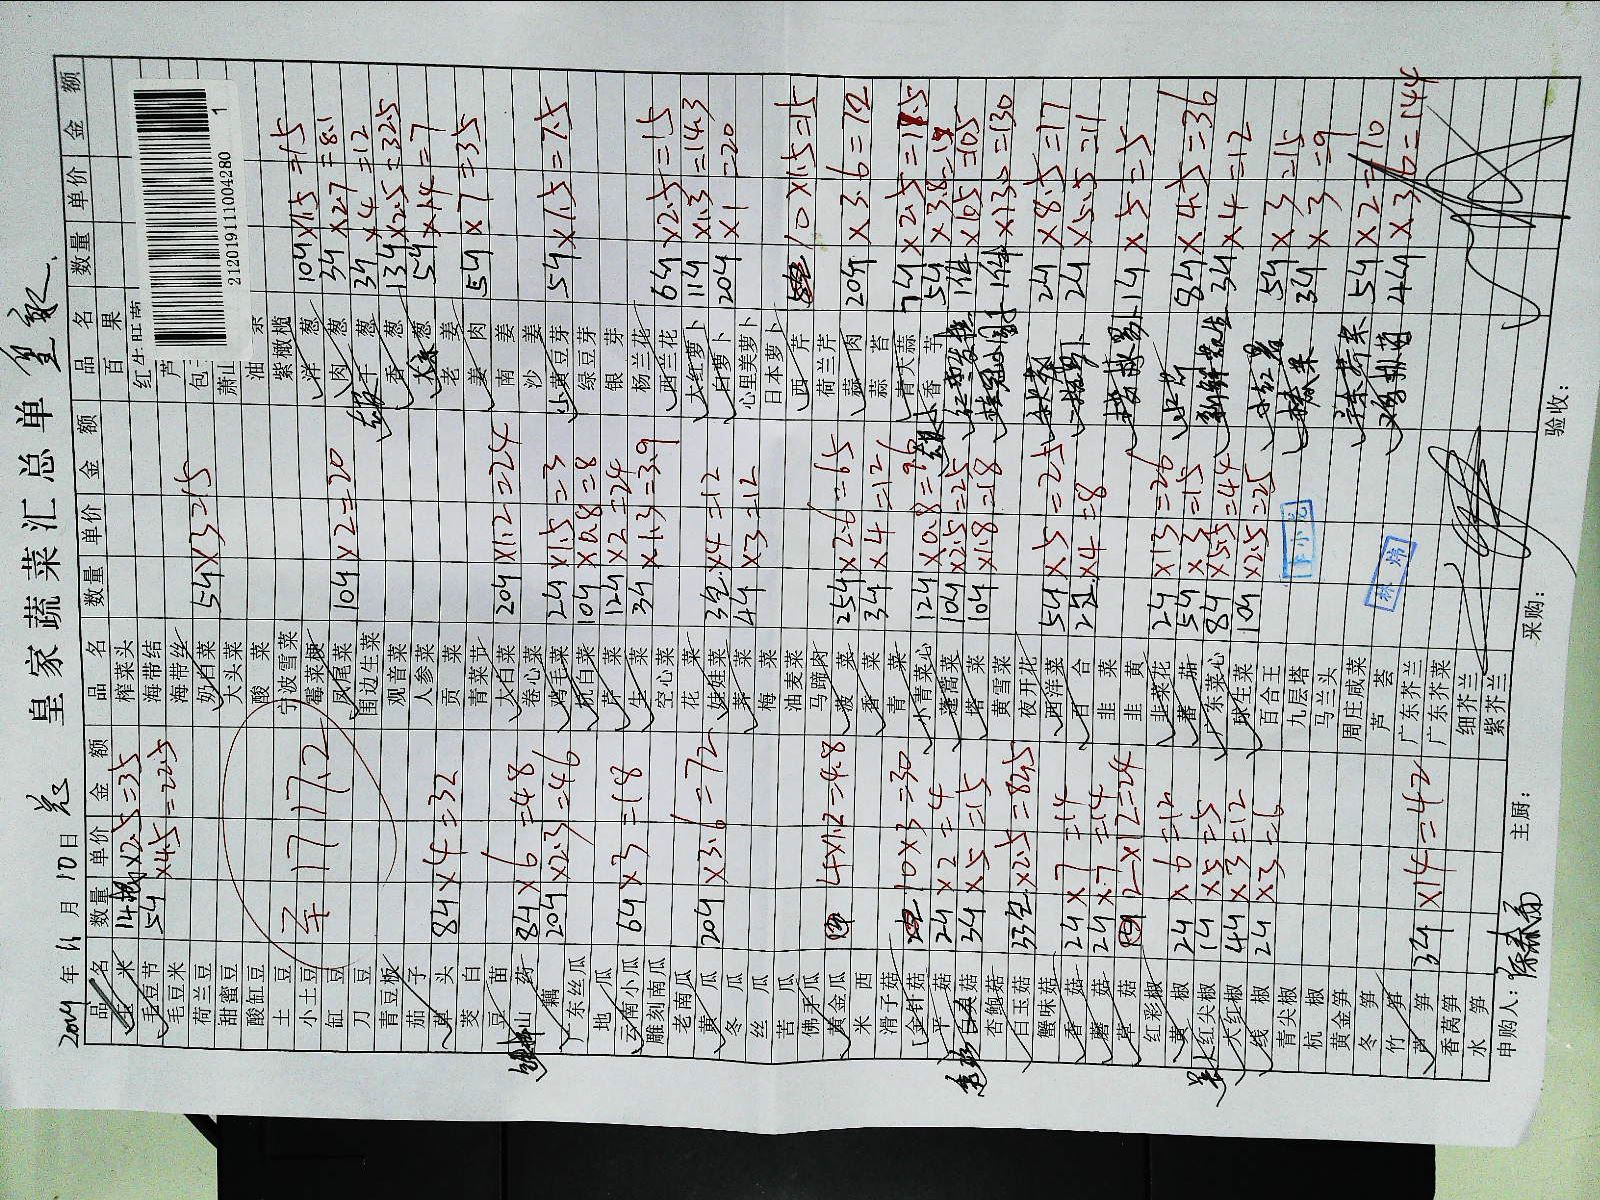 皇家蔬菜汇总单
2019年11月10日
品名 数量 单价 金额 品名 数量 单价 金额 品名 数量 单价 金额
玉米 ×2.5=35
毛豆节 5斤 ×4.5=22.5
毛豆米
荷兰豆
甜蜜豆
酸缸豆
土豆
小土豆
缸豆
刀豆
青豆板
茄子
草头 8斤×4=32
茭白
豆苗
山药 8斤×6=48
藕 20斤×2.3=46
广东丝瓜
地瓜
云南小瓜 6斤×3=18
雕刻南瓜
老南瓜
黄瓜 20斤×3.6=72
冬瓜
丝瓜
苦瓜
佛手瓜
黄金瓜 4×1.2=4.8
米西
滑子菇
金针菇 10×3=30
平菇 2斤×2=4
菇 3斤×5=15
杏鲍菇
白玉菇 33包×2.5=82.5
蟹味菇
香菇 2斤×7=14
蘑菇 2斤×7=14
草菇 2×12=24
红彩椒
黄椒 2斤×6=12
红尖椒 1斤×5=5
大红椒 4斤×3=12
线椒 2斤×3=6
青尖椒
杭椒
黄金笋
冬笋
竹笋
芦笋 3斤×14=42
香莴笋
水笋
1717.2
榨菜头
海带结
海带丝
奶白菜 5斤×3=15
大头菜
酸菜
宁波雪菜
霉菜梗
凤尾菜 10斤×2=20
围边生菜
观音菜
人参菜
贡菜
青菜节
大白菜 20斤×1.2=24
卷心菜
鸡毛菜 2斤×1.5=3
杭白菜 10斤×0.8=8
芹菜 12斤×2=24
生菜 3斤×1.3=3.9
空心菜
花菜
娃娃菜 3包×4=12
荠菜 4斤×3=12
梅菜
油麦菜
马蹄肉
菠菜 25斤×2.6=65
香菜 3斤×4=12
青菜
小青菜心 12斤×0.8=9.6
蓬蒿菜 10斤×2.5=25
塔菜 10斤×1.8=18
黄雪菜
夜开花
西洋菜 5斤×5=25
百合 2包×4=8
韭菜
韭黄
韭菜花 2斤×13=26
蕃茄 5斤×3=15
广东菜心 8斤×5.5=44
球生菜 10斤×2.5=25
百合王
九层塔
马兰头
周庄咸菜
芦荟
广东芥兰
广东芥菜
细芥兰
紫芥兰
百果
红生旺南
芦
包
萧山
油
紫橄榄
洋葱 10斤×1.5=15
肉葱 3斤×2.7=8.1
干葱 3斤×4=12
香葱 13斤×2.5=32.5
葱 5斤×1.4=7
老姜
姜肉 5斤×7=35
南姜
沙姜
黄豆芽 5斤×1.5=7.5
绿豆芽
银芽
杨兰花
西兰花 6斤×2.5=15
大红萝卜 11斤×1.3=14.3
白萝卜 20斤×1=20
心里美萝卜
日本萝卜
西芹 10×1.5=15
荷兰芹
蒜肉 20斤×3.6=72
蒜苔
青大蒜 7斤×2.5=17.5
香节 5斤×3.8=19
1件×105=105
1件×130=130
2斤×8.5=17
2斤×5.5=11
1斤×5=5
8斤×4.5=36
新鲜花生 3斤×4=12
小红薯 5斤×3=15
3斤×3=9
5斤×2=10
4斤×36=144
212019111004280
1
李小龙
林炜
申购人：
主厨：
采购：
验收：